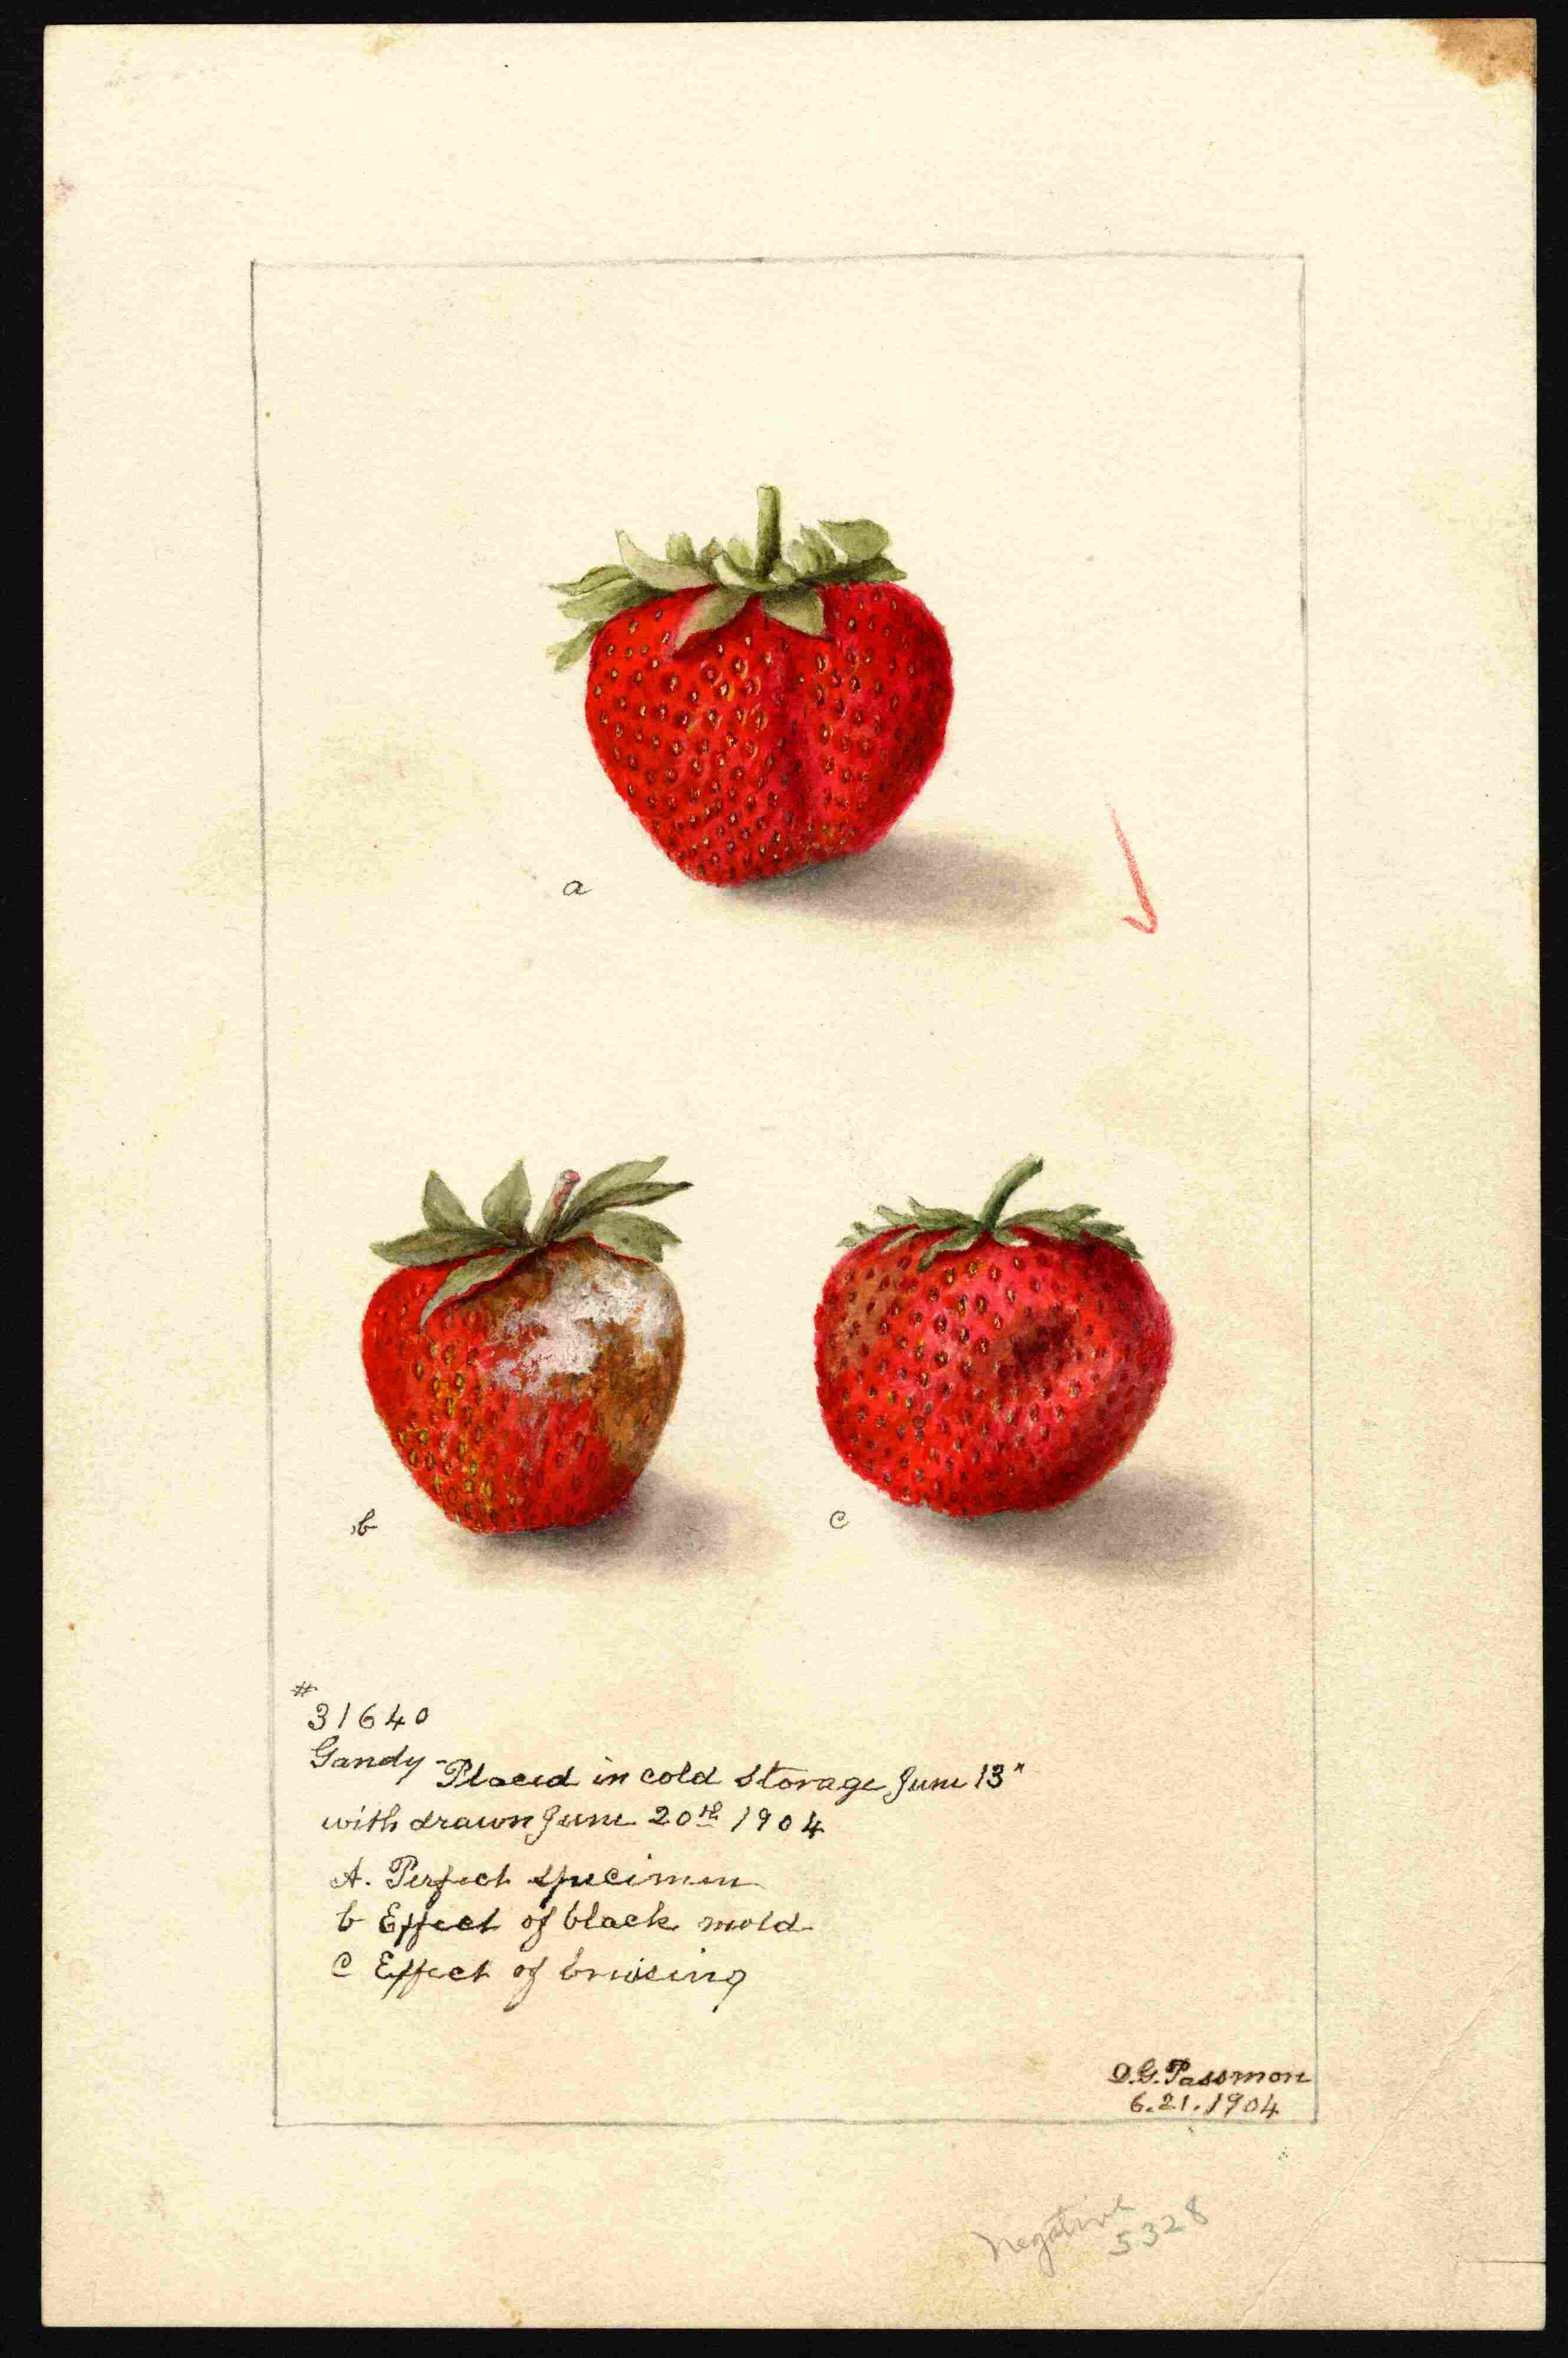 a
b
c
#
31640
Gandy - Placed in cold storage June 13"
with drawn June 20th 1904
A. Perfect specimen
b Effect of black mold
C Effect of bruising
D.G. Passmore
6.21.1904
Negative
5328